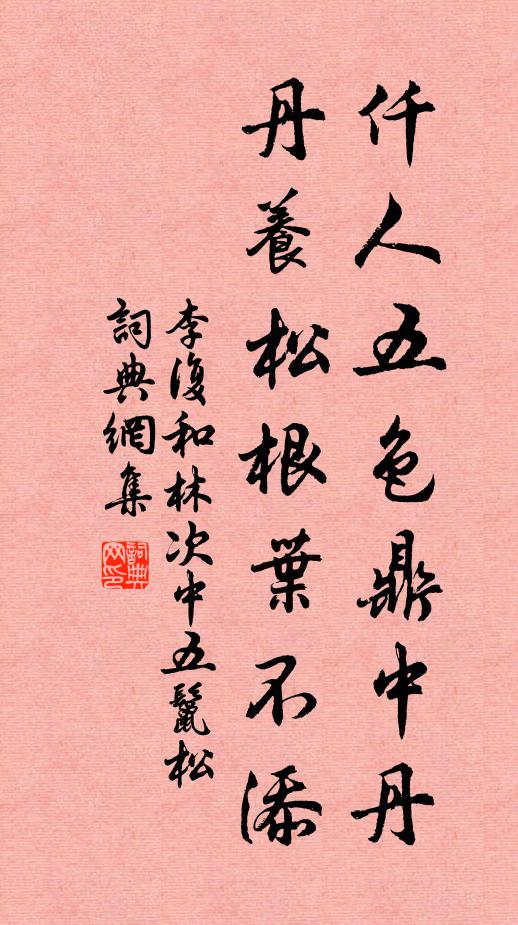 仟人五色鼎中丹
丹養松根葉不添
李復和林次中五鬣松
詞典網集
詞典網印